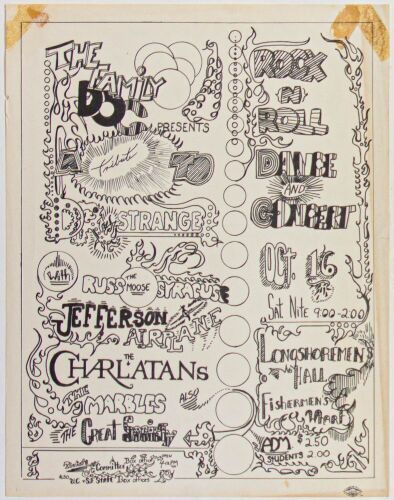 THE
FAMILY
DOG
PRESENTS
A Tribute TO
DR.
STRANGE
With
RUSS THE MOOSE SYRACUSE
JEFFERSON
AIRPLANE
THE
CHARLATANS
THE
MARBLES
ALSO
THE Great Society
ROCK
N
ROLL
DANCE
AND
CONCERT
OCT. 16
Sat Nite 9:00-2:00
LONGSHOREMEN'S
HALL
FISHERMEN'S
WHARF
ADM $2.50
STUDENTS 2.00
Committee
Box office
U.C. + S.F. State Box offices